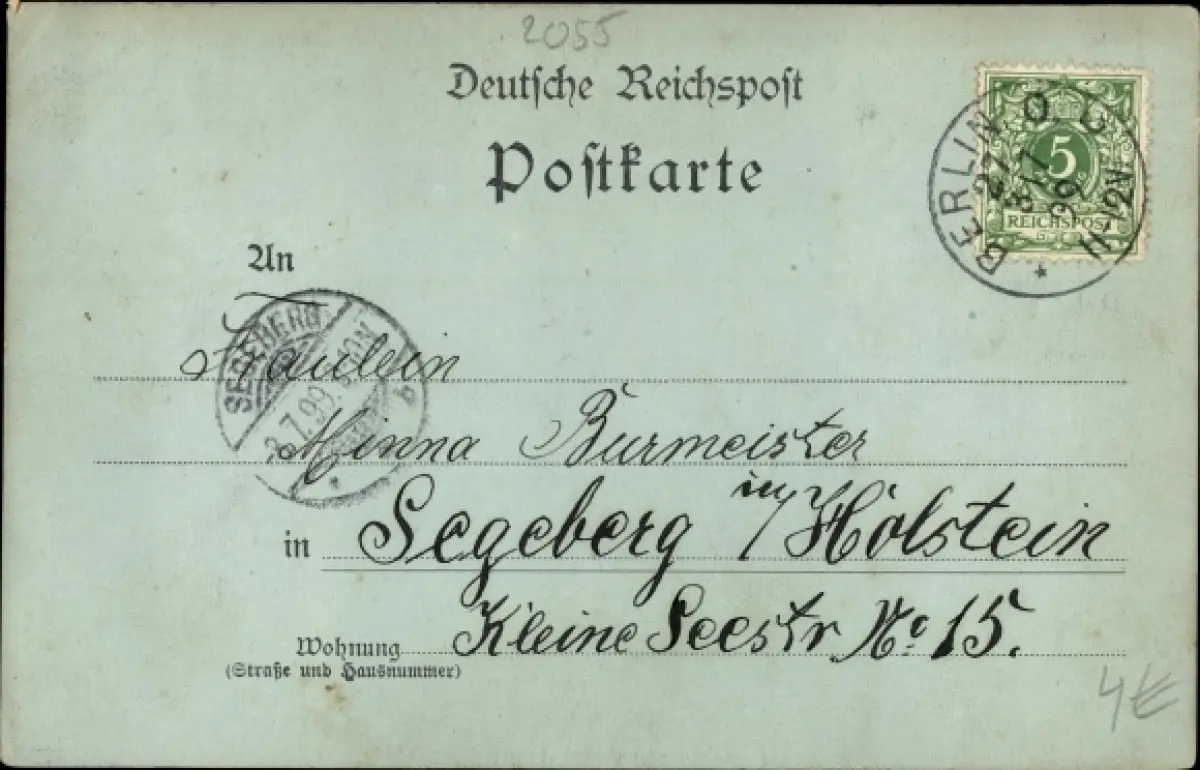 2055
Deutsche Reichspost
Postkarte
BERLIN O.
5
REICHSPOST
99
11-12V
An
SEGEBERG
.7.99.
Fraulein
Minna Burmeister
in Segeberg in/Holstein
Wohnung Kleine Seestr. No. 15.
(Straße und Hausnummer)
4€